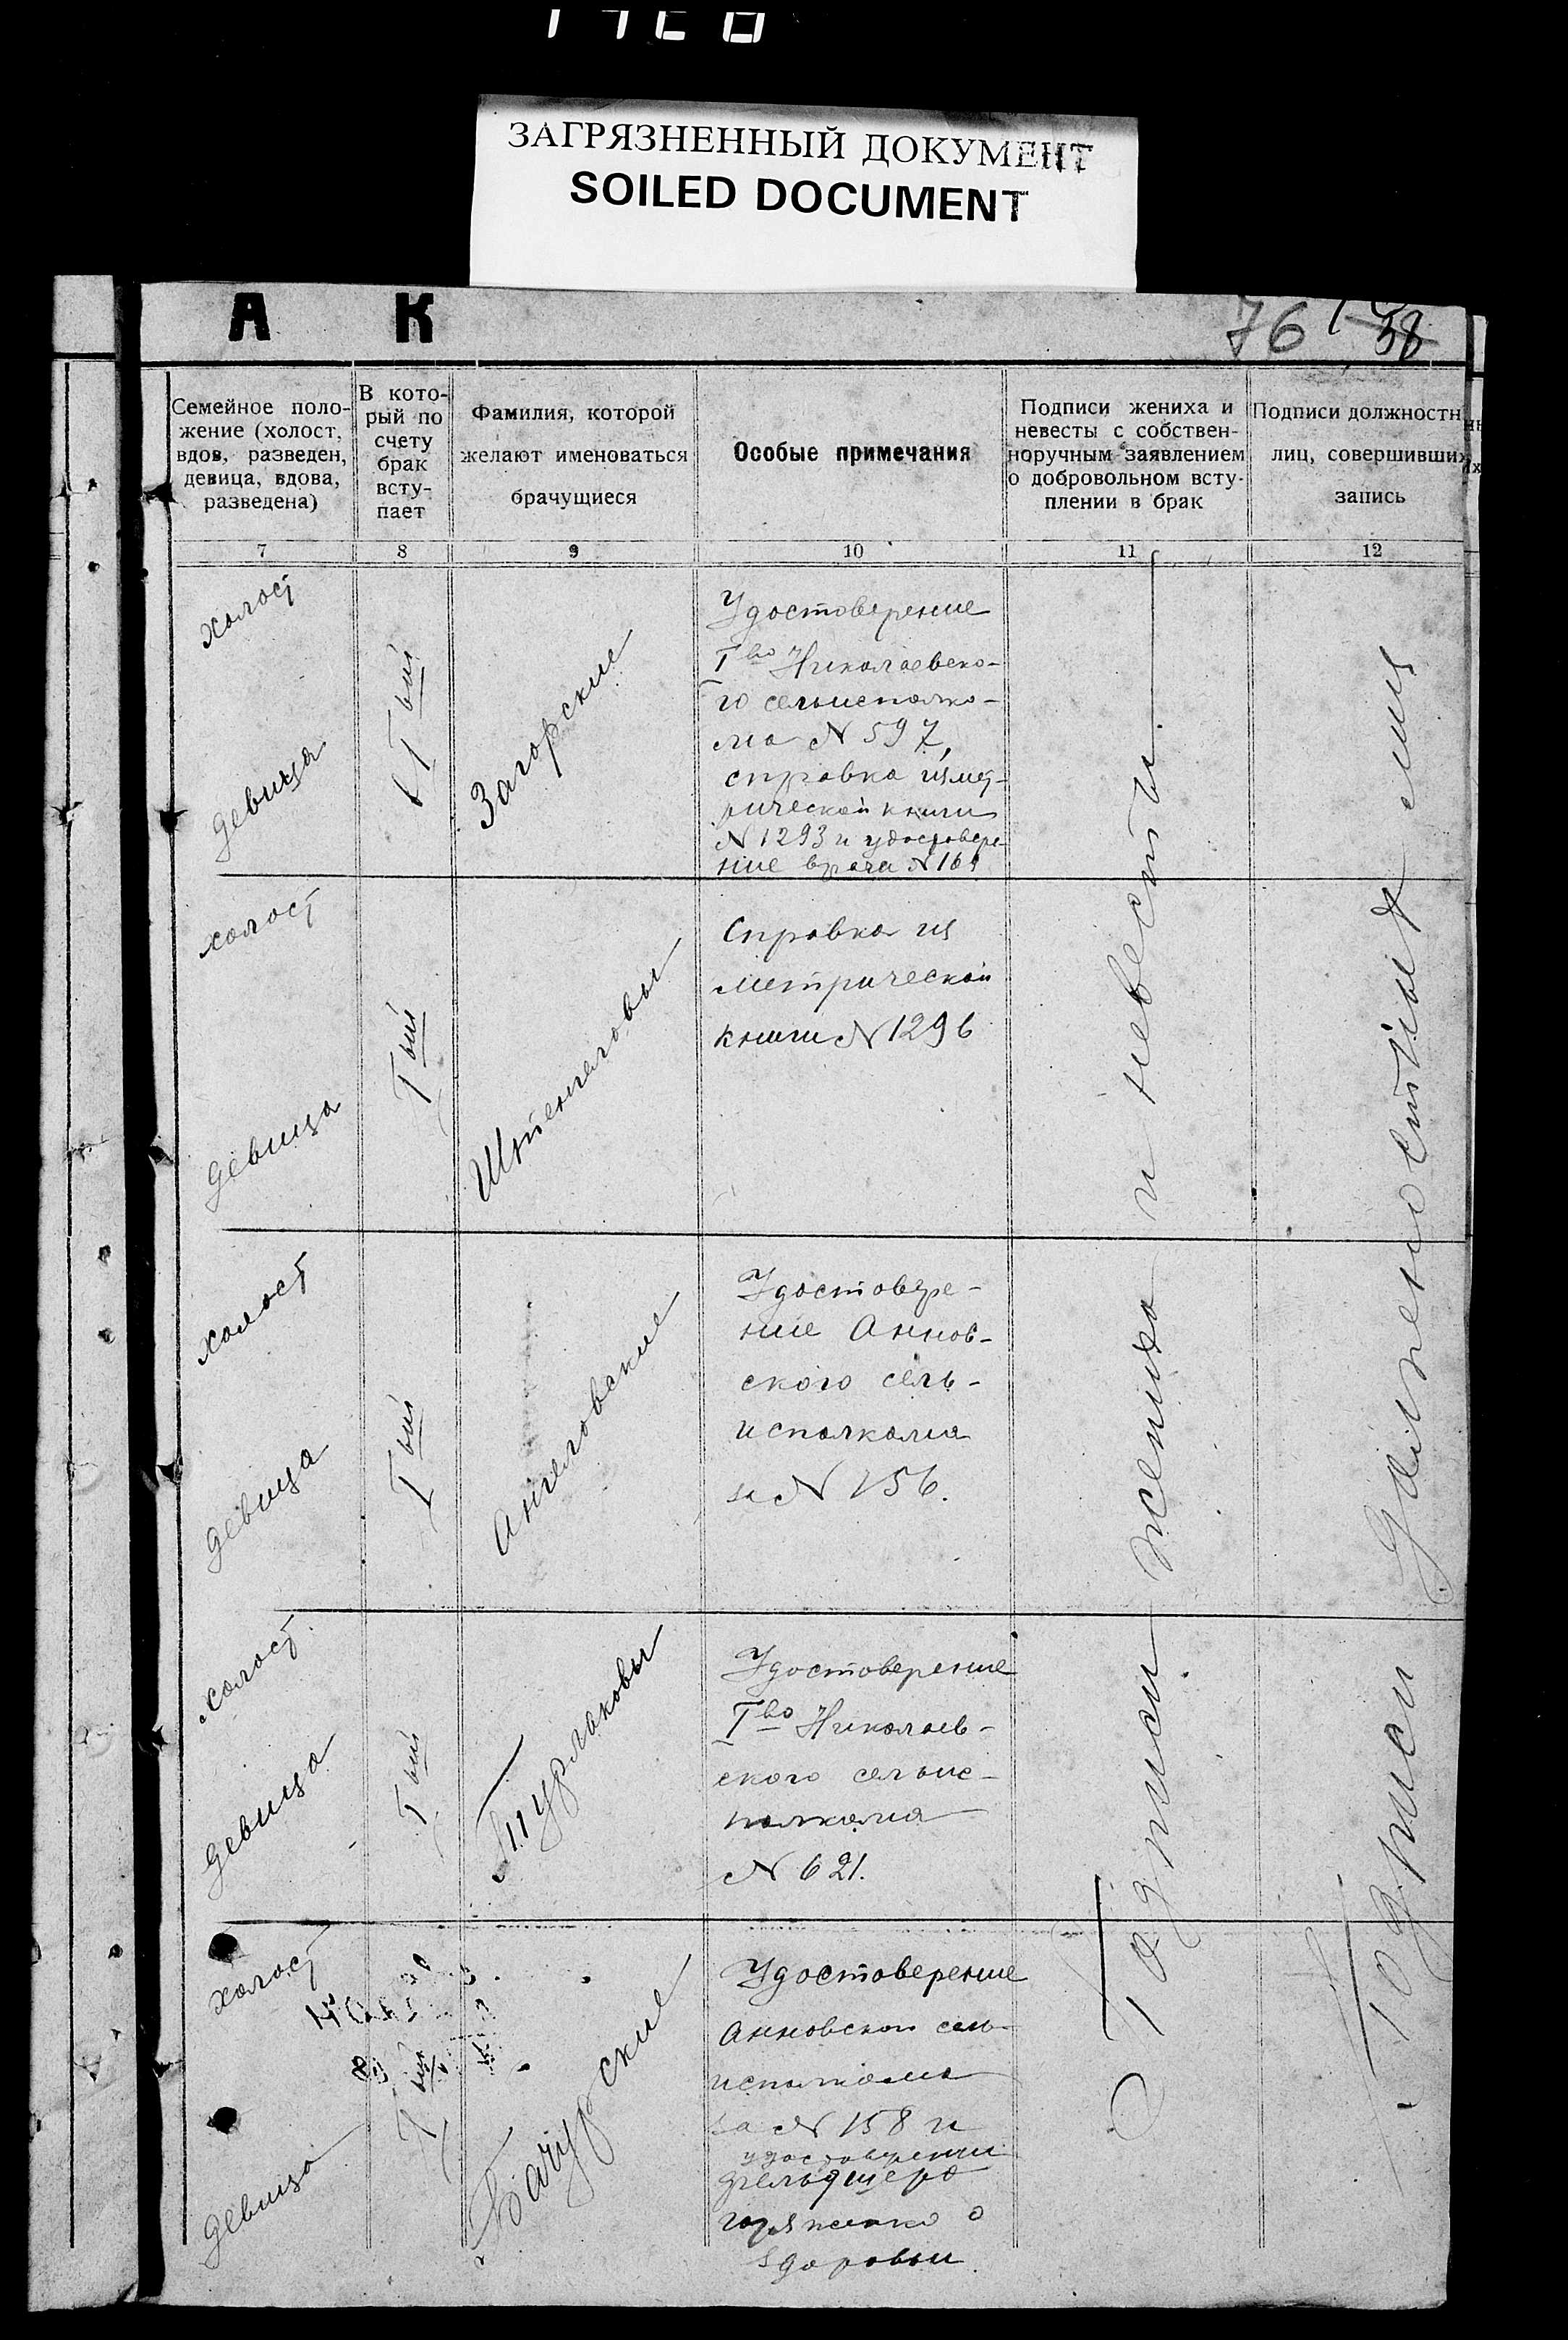 ЗАГРЯЗНЕННЫЙ ДОКУМЕНТ
SOILED DOCUMENT
А К
76
58
Семейное поло-
жение (холост,
вдов, разведен,
девица, вдова,
разведена)
В кото-
рый по
счету
брак
всту-
пает
Фамилия, которой
желают именоваться
брачущиеся
Особые примечания
Подписи жениха и
невесты с собствен-
норучным заявлением
о добровольном всту-
плении в брак
Подписи должностн
лиц, совершивши
запись
7 8 9 10 11 12
холост
девица
I ый
Загорские
Удостоверение
I во Николаевско-
го сельисполко-
ма N 597,
справка из мет-
рической книги
N 1293 и удостовере-
ние врача N 169
холост
девица
I ый
Штенгеловы
Справка из
метрической
книги N 1296
холост
девица
I ый
Ангеловские
Удостовере-
ние Аннов-
ского сель-
исполкома
за N 156.
холост
девица
I ый
Турлаковы
Удостоверение
I во Николаев-
ского сельис-
полкома
N 621.
холост
девица
I ый
Бачурские
Удостоверение
Анновского сель-
исполкома
за N 158 и
удостоверении
фельдшера
о
здоровьи
Подписи жениха и невесты
Подписи должностных лиц